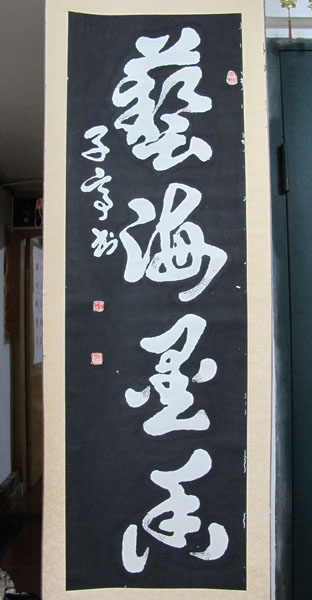 藝海墨香
子亭刻